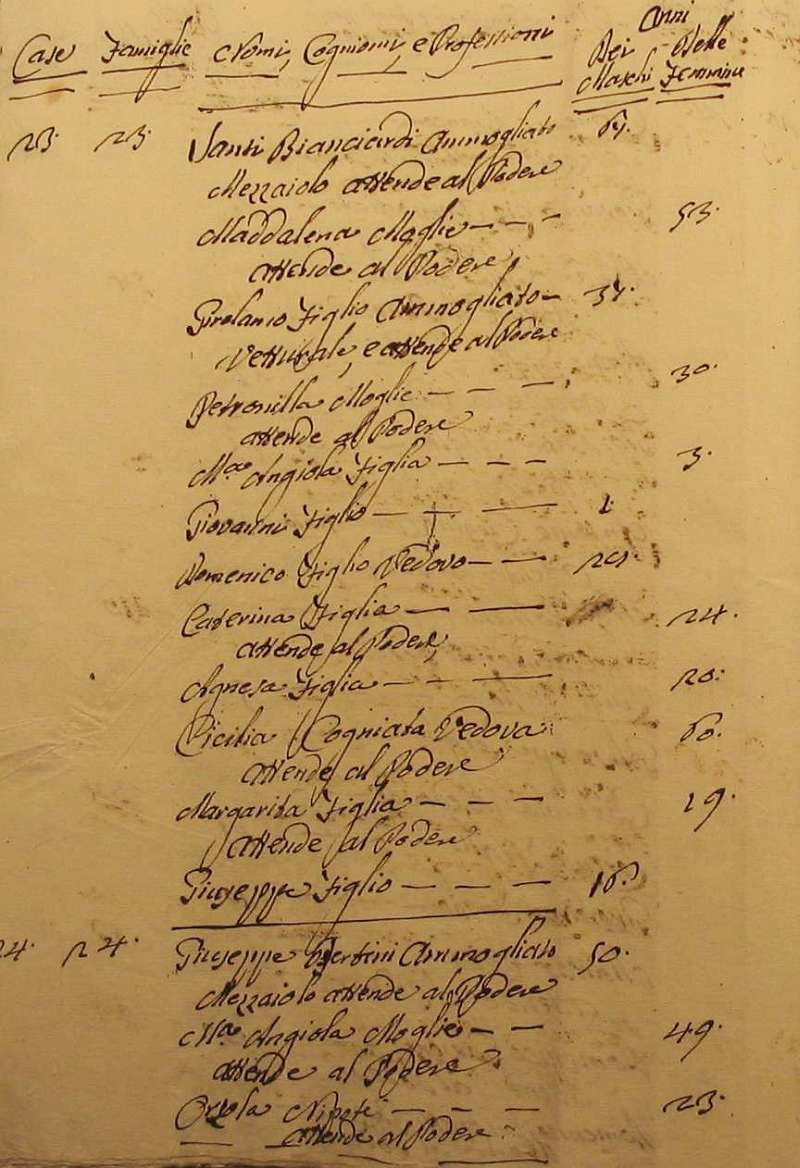 Anni
Case Famiglie Nomi, Cognomi, e Professioni Dei Delle
Maschi Femmine
23. 23. Santi Bianciardi Ammogliato
Mezzaiolo attende al Podere
Maddalena Moglie — — — 53.
attende al Podere
Girolamo Figlio Ammogliato —
Vetturale, e attende al Podere
Petronilla Moglie — — — 30.
attende al Podere
M.a Angiola Figlia — — — 3.
Giovanni Figlio — — — 1.
Domenico Figlio Vedovo — —
Caterina Figlia — — 24.
attende al Podere
Agnesa Figlia — — — 20.
Cicilia Cogniata Vedova 60.
attende al Podere
Margarita Figlia — — — 19.
attende al Podere
Giuseppe Figlio — — — 16.
24. 24. Giuseppe Bertini Ammogliato 50.
Mezzaiolo attende al Podere
M.a Angiola Moglie — — 49.
attende al Podere
Orsola Nipote — — — 23.
attende al Podere